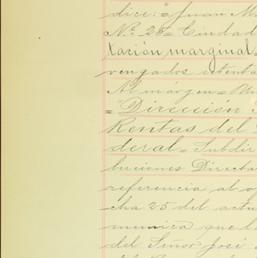 dice: "Juan M
Nº 28= Ciudad
tación marginal
vengados
Al márgen=
"Dirección
Rentas del
deral= Subdir
buciones Directa
referencia al o
cha 25 del actu
que
del Señor José